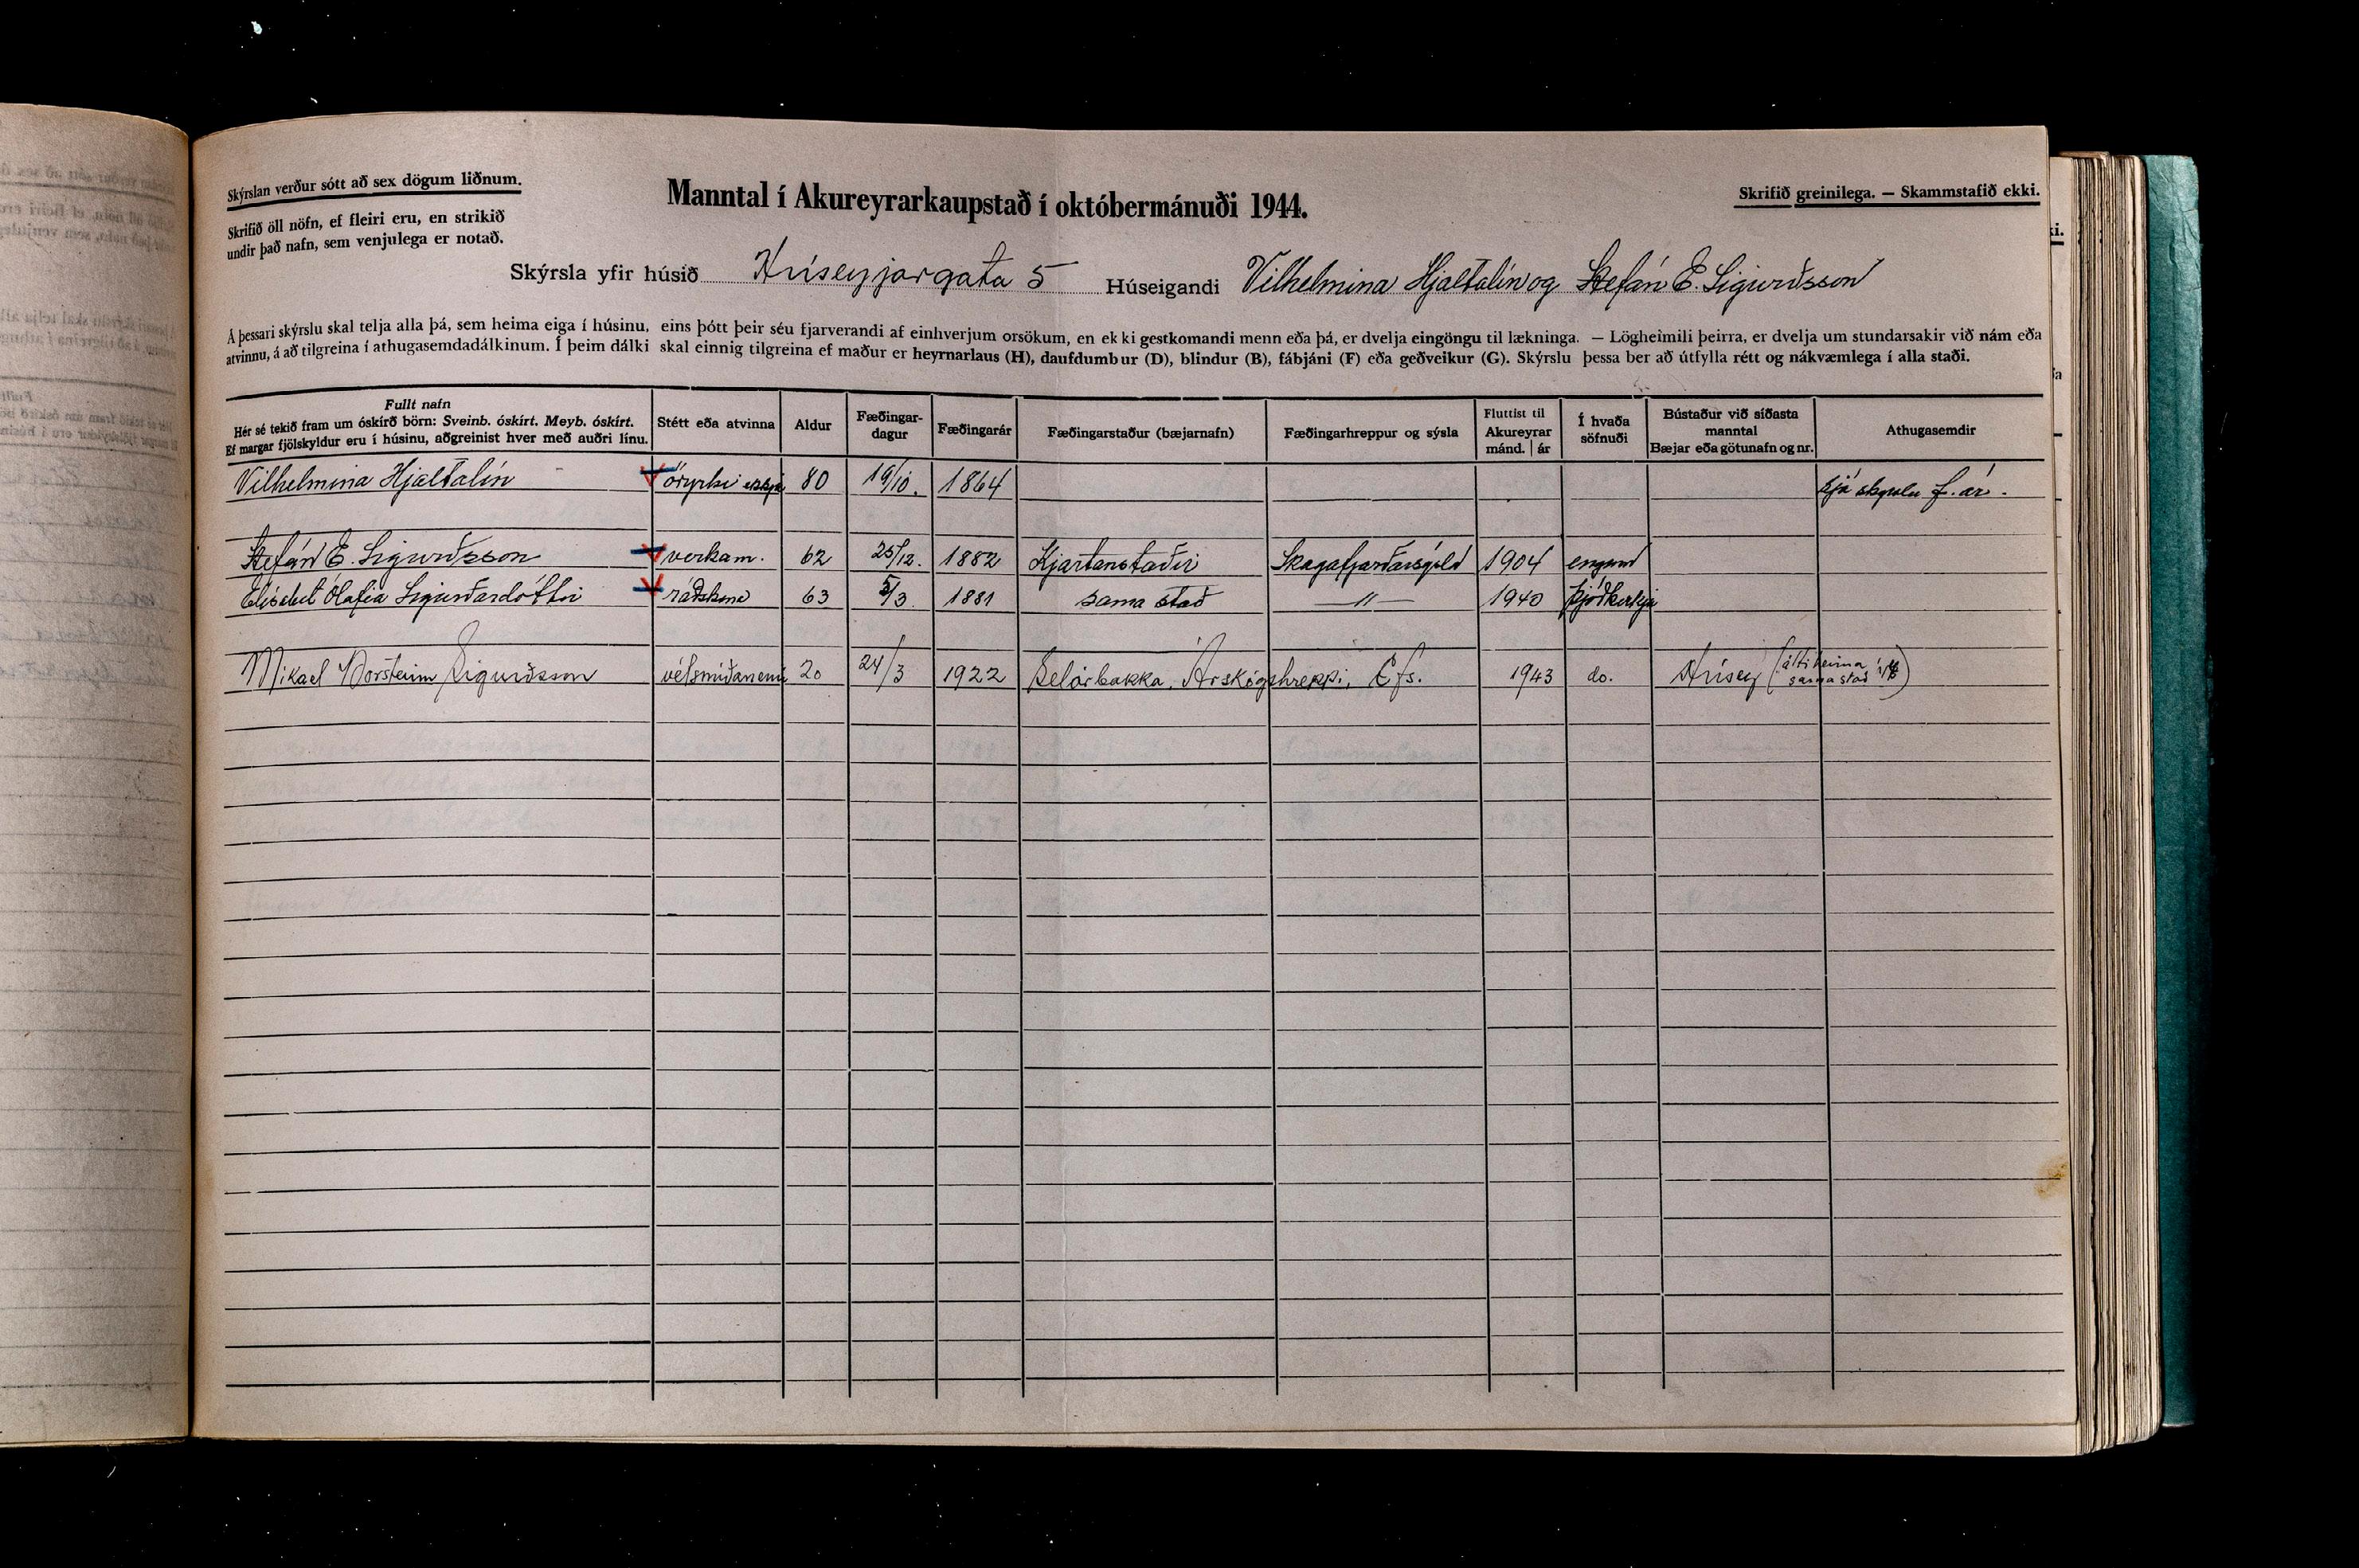 Skýrslan verður sótt að sex dögum liðnum.
Skrifið öll nöfn, ef fleiri eru, en strikið
undir það nafn, sem venjulega er notað.
Manntal í Akureyrarkaupstað í októbermánuði 1944.
Skrifið greinilega. — Skammstafið ekki.
Skýrsla yfir húsið Hríseyjargata 5 Húseigandi Vilhelmina Hjaltalín og Stefán E. Sigurðsson
Á þessari skýrslu skal telja alla þá, sem heima eiga í húsinu, eins þótt þeir séu fjarverandi af einhverjum orsökum, en ekki gestkomandi menn eða þá, er dvelja eingöngu til lækninga. — Lögheimili þeirra, er dvelja um stundarsakir við nám eða
atvinnu, á að tilgreina í athugasemdadálkinum. Í þeim dálki skal einnig tilgreina ef maður er heyrnarlaus (H), daufdumbur (D), blindur (B), fábjáni (F) eða geðveikur (G). Skýrslu þessa ber að útfylla rétt og nákvæmlega í alla staði.
Fullt nafn
Hér sé tekið fram um óskírð börn: Sveinb. óskírt. Meyb. óskírt.
Ef margar fjölskyldur eru í húsinu, aðgreinist hver með auðri línu.
Stétt eða atvinna
Aldur
Fæðingar-
dagur
Fæðingarár
Fæðingarstaður (bæjarnafn)
Fæðingarhreppur og sýsla
Fluttist til
Akureyrar
mánd. | ár
Í hvaða
söfnuði
Bústaður við síðasta
manntal
Bæjar eða götunafn og nr.
Athugasemdir
Vilhelmina Hjaltalín öryrki ekkja 80 19/10. 1864 sjá skyrslu f. ár.
Stefán E. Sigurðsson verkam. 62 25/12. 1882 Kjartanstaðir Skagafjarðarsýsla 1904 engum
Elísabet Ólafía Sigurðardóttir ráðskona 63 5/3 1881 sama stað —"— 1940 Þjóðkirkja
Mikael Þorsteinn Sigurðsson vélsmíðanemi 20 24/3 1922 Selárbakka, Árskógshreppi, Efs. 1943 do. Hrísey (átti heima
sama stað